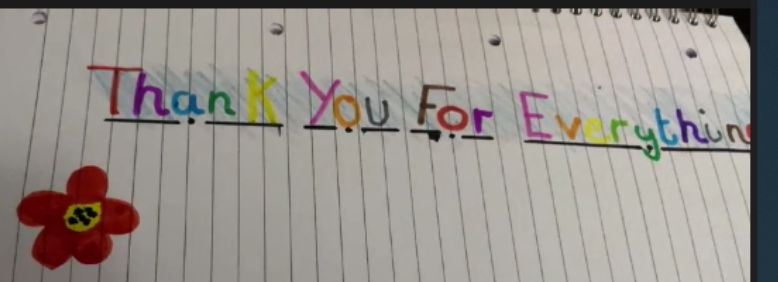 Thank You For Everythin